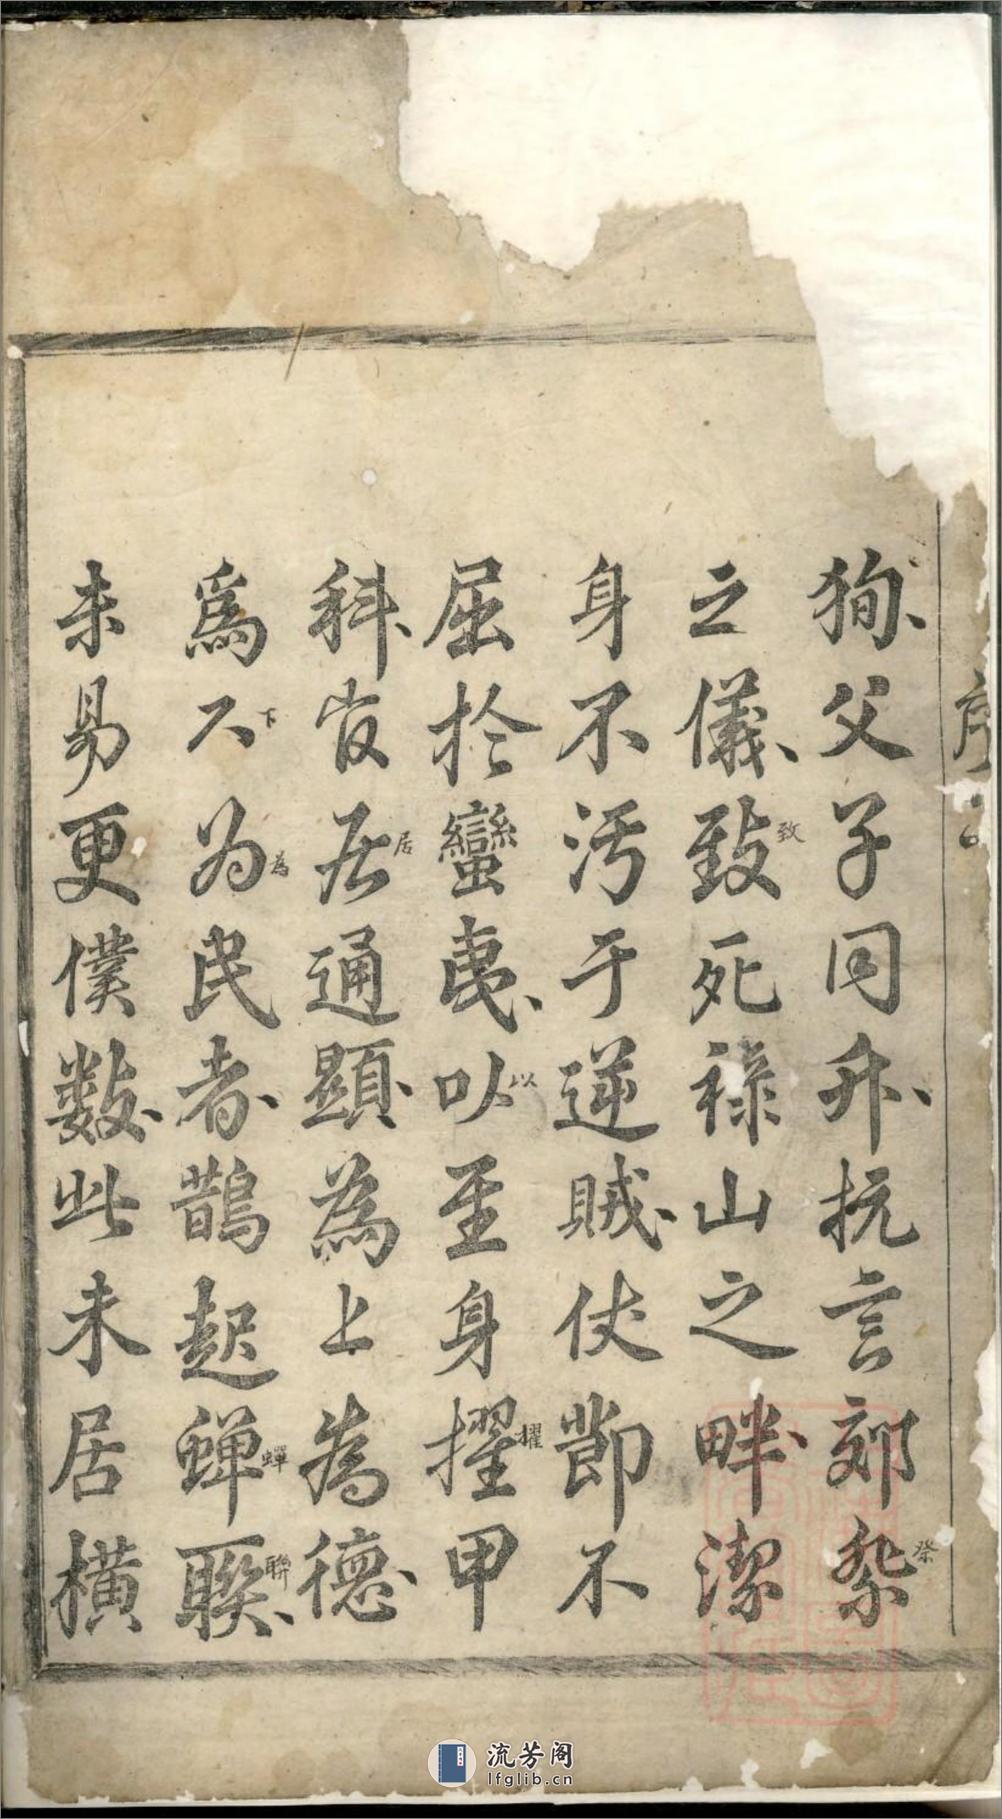 序
狥父子同升抗言郊祭
之儀致死祿山之畔潔
身不汚于逆賊仗節不
屈於蠻夷以至身擢甲
科官居通顯為上為德
為下為民者鵲起蟬聯
未易更僕數此未居橫
癸
致
以
擢
居
下
為
蟬
聯
流芳阁
lfglib.cn